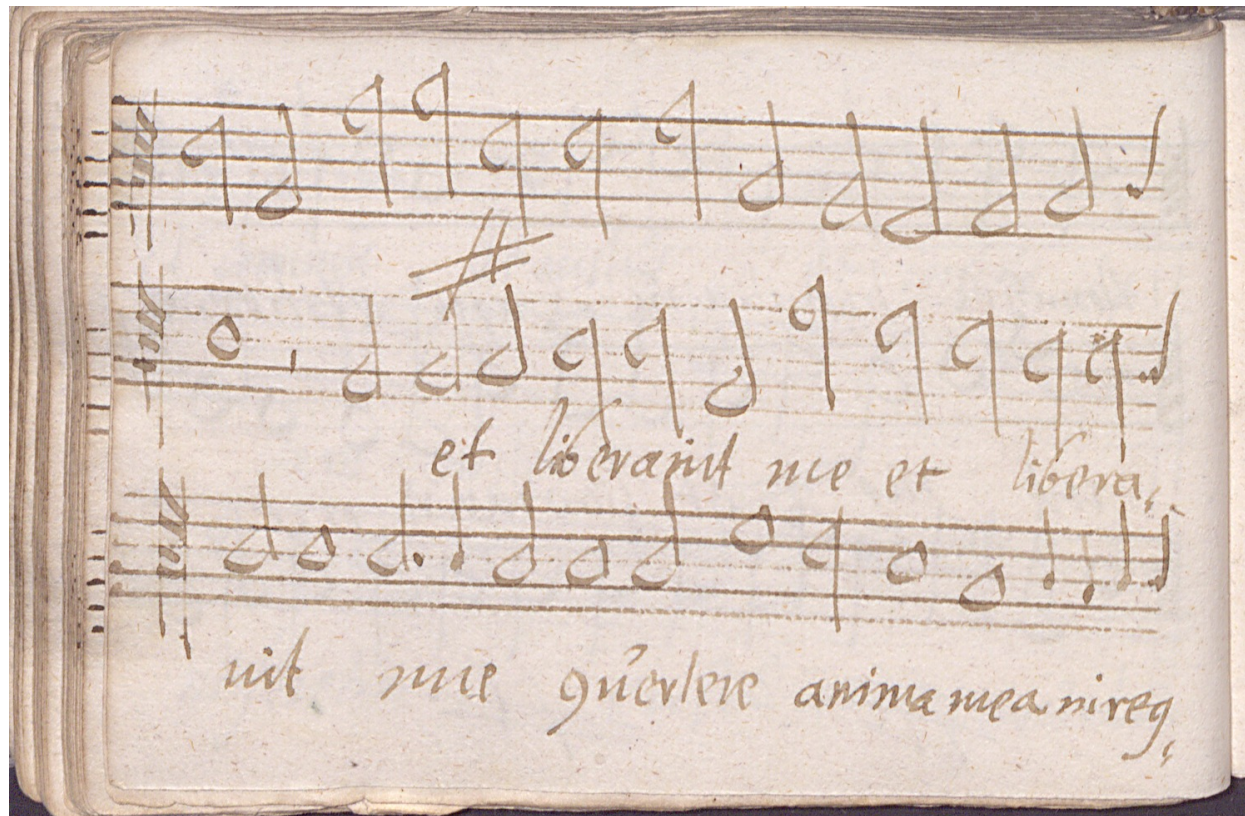 et liberauit me et libera
uit me qũertere anima mea in req